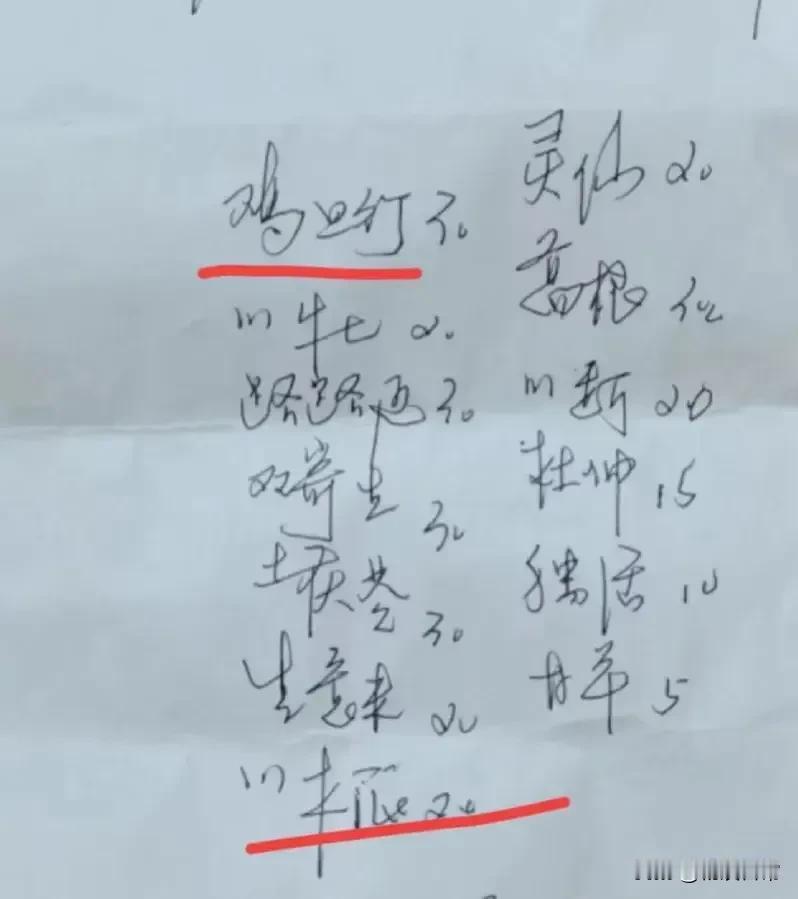 鸡旦行 30
灵仙 20
川牛七 20
葛根
路路通 30
川断 20
双寄生 30
杜仲 15
土茯苓 30
独活 10
生意米 20
甘草 5
川木瓜 20